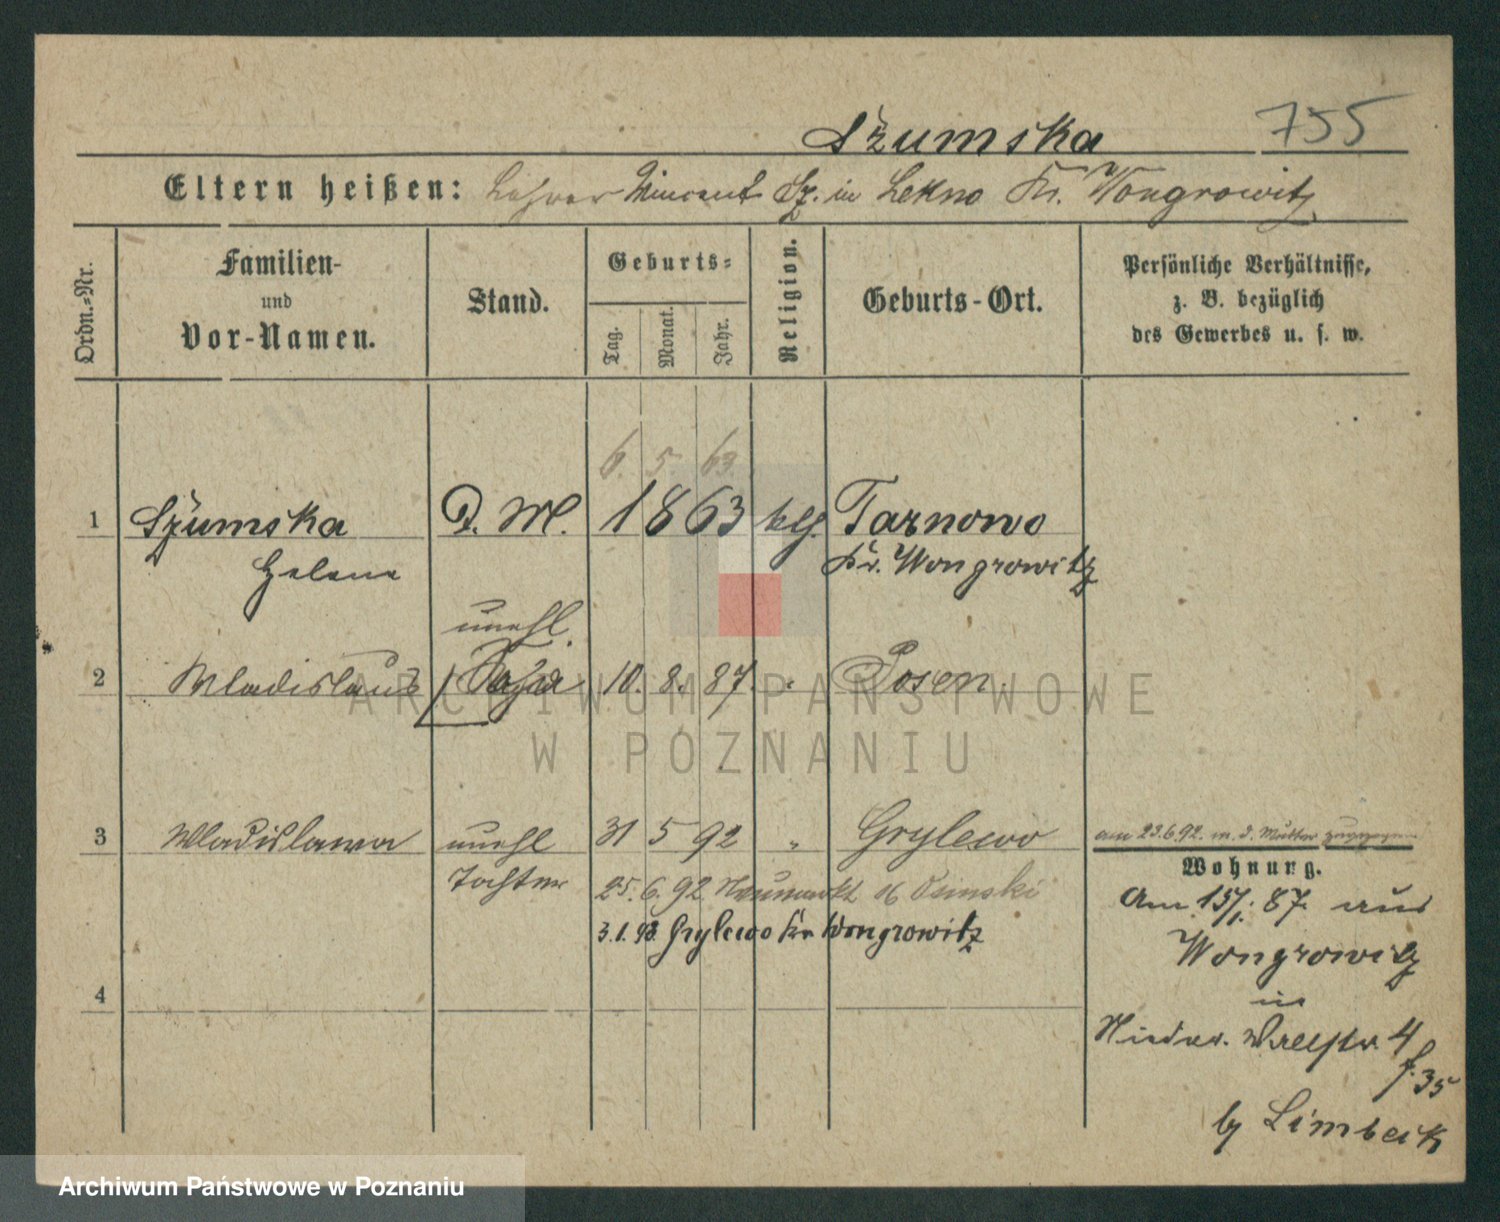 Szumska 755
Eltern heißen: Lehrer Vincent Sz. in Lekno Kr. Wongrowitz
Ordn.=Nr.
Familien-
und
Vor-Namen.
Stand.
Geburts=
Tag.
Monat.
Jahr.
Religion.
Geburts-Ort.
Persönliche Verhältnisse,
z. B. bezüglich
des Gewerbes u. s. w.
6. 5. 63.
1 Szumska D. M. 1863 klg. Tarnowo
Helene Kr. Wongrowitz
unehl.
2 Wladislaus 10. 8. 87. " Posen.
3 Wladislawa unehl 31 5 92 " Grylewo
Tochter
am 23.6.92. m. d. Mutter zugezogen
25. 6. 92. Neumarkt
3.1.93. Grylewo Kr Wongrowitz
4
Wohnung.
Am 15/1. 87. aus
Wongrowitz
in
Nieder. Wallstr. 4
f. 35
by Limbeck
ARCHIWUM PAŃSTWOWE
W POZNANIU
Archiwum Państwowe w Poznaniu